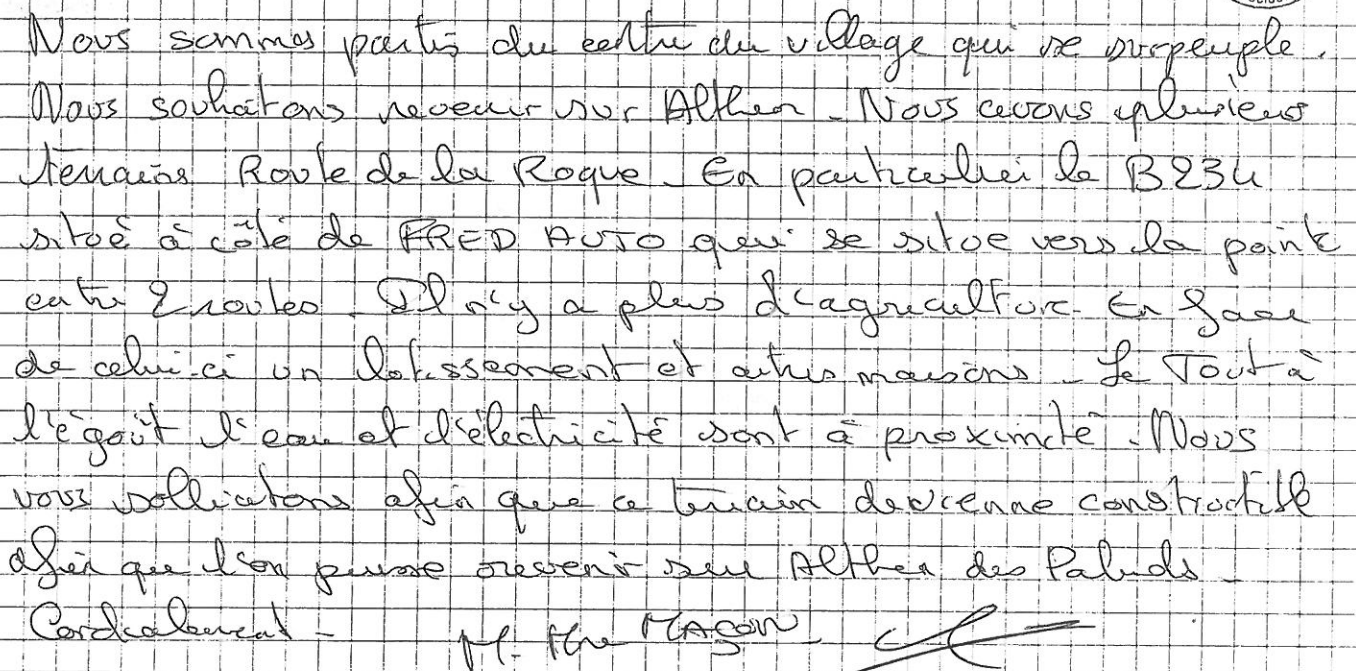 Nous sommes partis du centre du village qui se surpeuple.
Nous souhaitons revenir sur Althen - Nous avons plusieurs
terrains Route de la Roque - En particulier le B234
situé à côté de FRED AUTO qui se situe vers la pointe
entre 2 routes - Il n'y a plus d'agriculture - En face
de celui-ci un lotissement et autres maisons - Le Tout à
l'égoût l'eau et l'électricité sont à proximité - Nous
vous sollicitons afin que ce terrain devienne constructible
afin que l'on puisse revenir sur Althen des Paluds -
Cordialement - M. Mme MAÇON